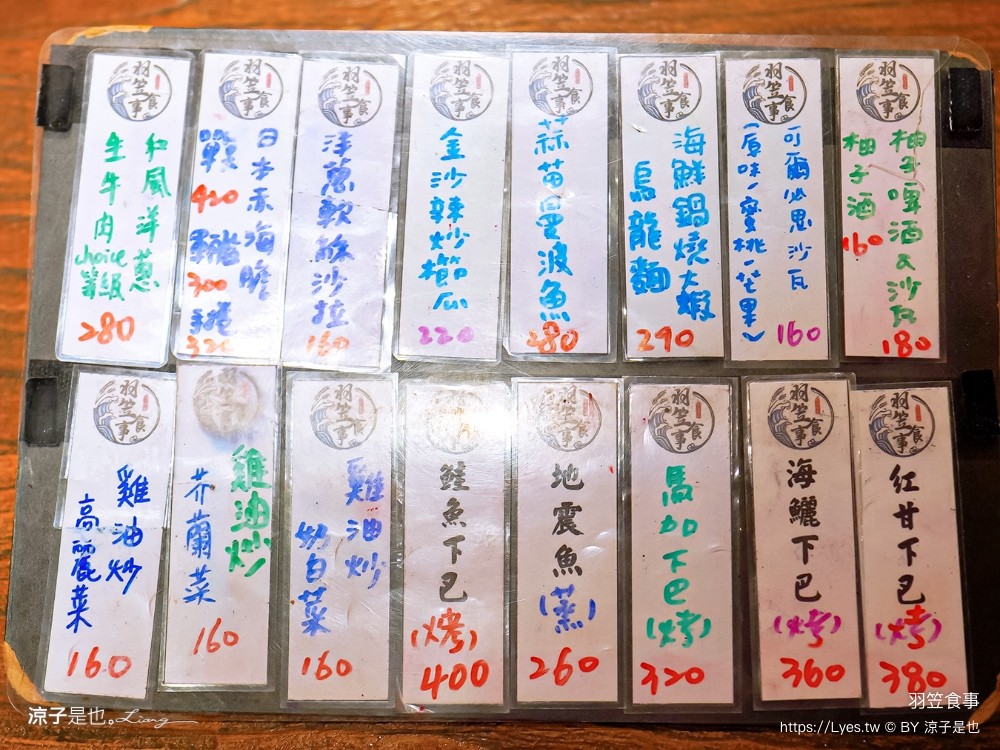 羽笠食事
和風洋蔥
生牛肉
choice
等級
280
羽笠食事
日本赤海膽
戰
420
軍艦
300
手捲
320
羽笠食事
洋蔥軟酥沙拉
160
羽笠食事
金沙辣炒櫛瓜
220
羽笠食事
蒜苗曼波魚
280
羽笠食事
海鮮鍋燒大蝦
烏龍麵
290
羽笠食事
可爾必思沙瓦
(原味/蜜桃/芒果)
160
羽笠食事
柚子啤酒&沙瓦
180
柚子酒
160
羽笠食事
雞油炒
高麗菜
160
雞油炒
芥蘭菜
160
羽笠食事
雞油炒
奶白菜
160
鮭魚下巴
(烤)
400
羽笠食事
地震魚
(蒸)
260
羽笠食事
馬加下巴
(烤)
320
羽笠食事
海鱺下巴
(烤)
360
羽笠食事
紅甘下巴
(烤)
380
涼子是也。Liang
羽笠食事
https://Lyes.tw © BY 涼子是也